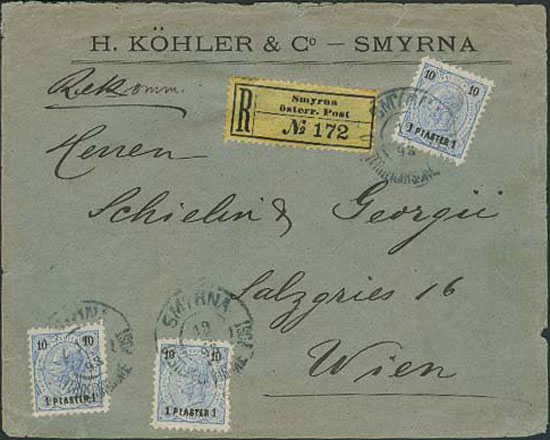 H. KÖHLER & Co – SMYRNA
Rekomm.
R
Smyrna
österr. Post
№ 172
10 10
1 PIASTER 1
SMYRNA
93
Herren
Schielin & Georgii
Salzgries 16
Wien
10 10
1 PIASTER 1
93
SMYRNA
19
10 10
1 PIASTER 1